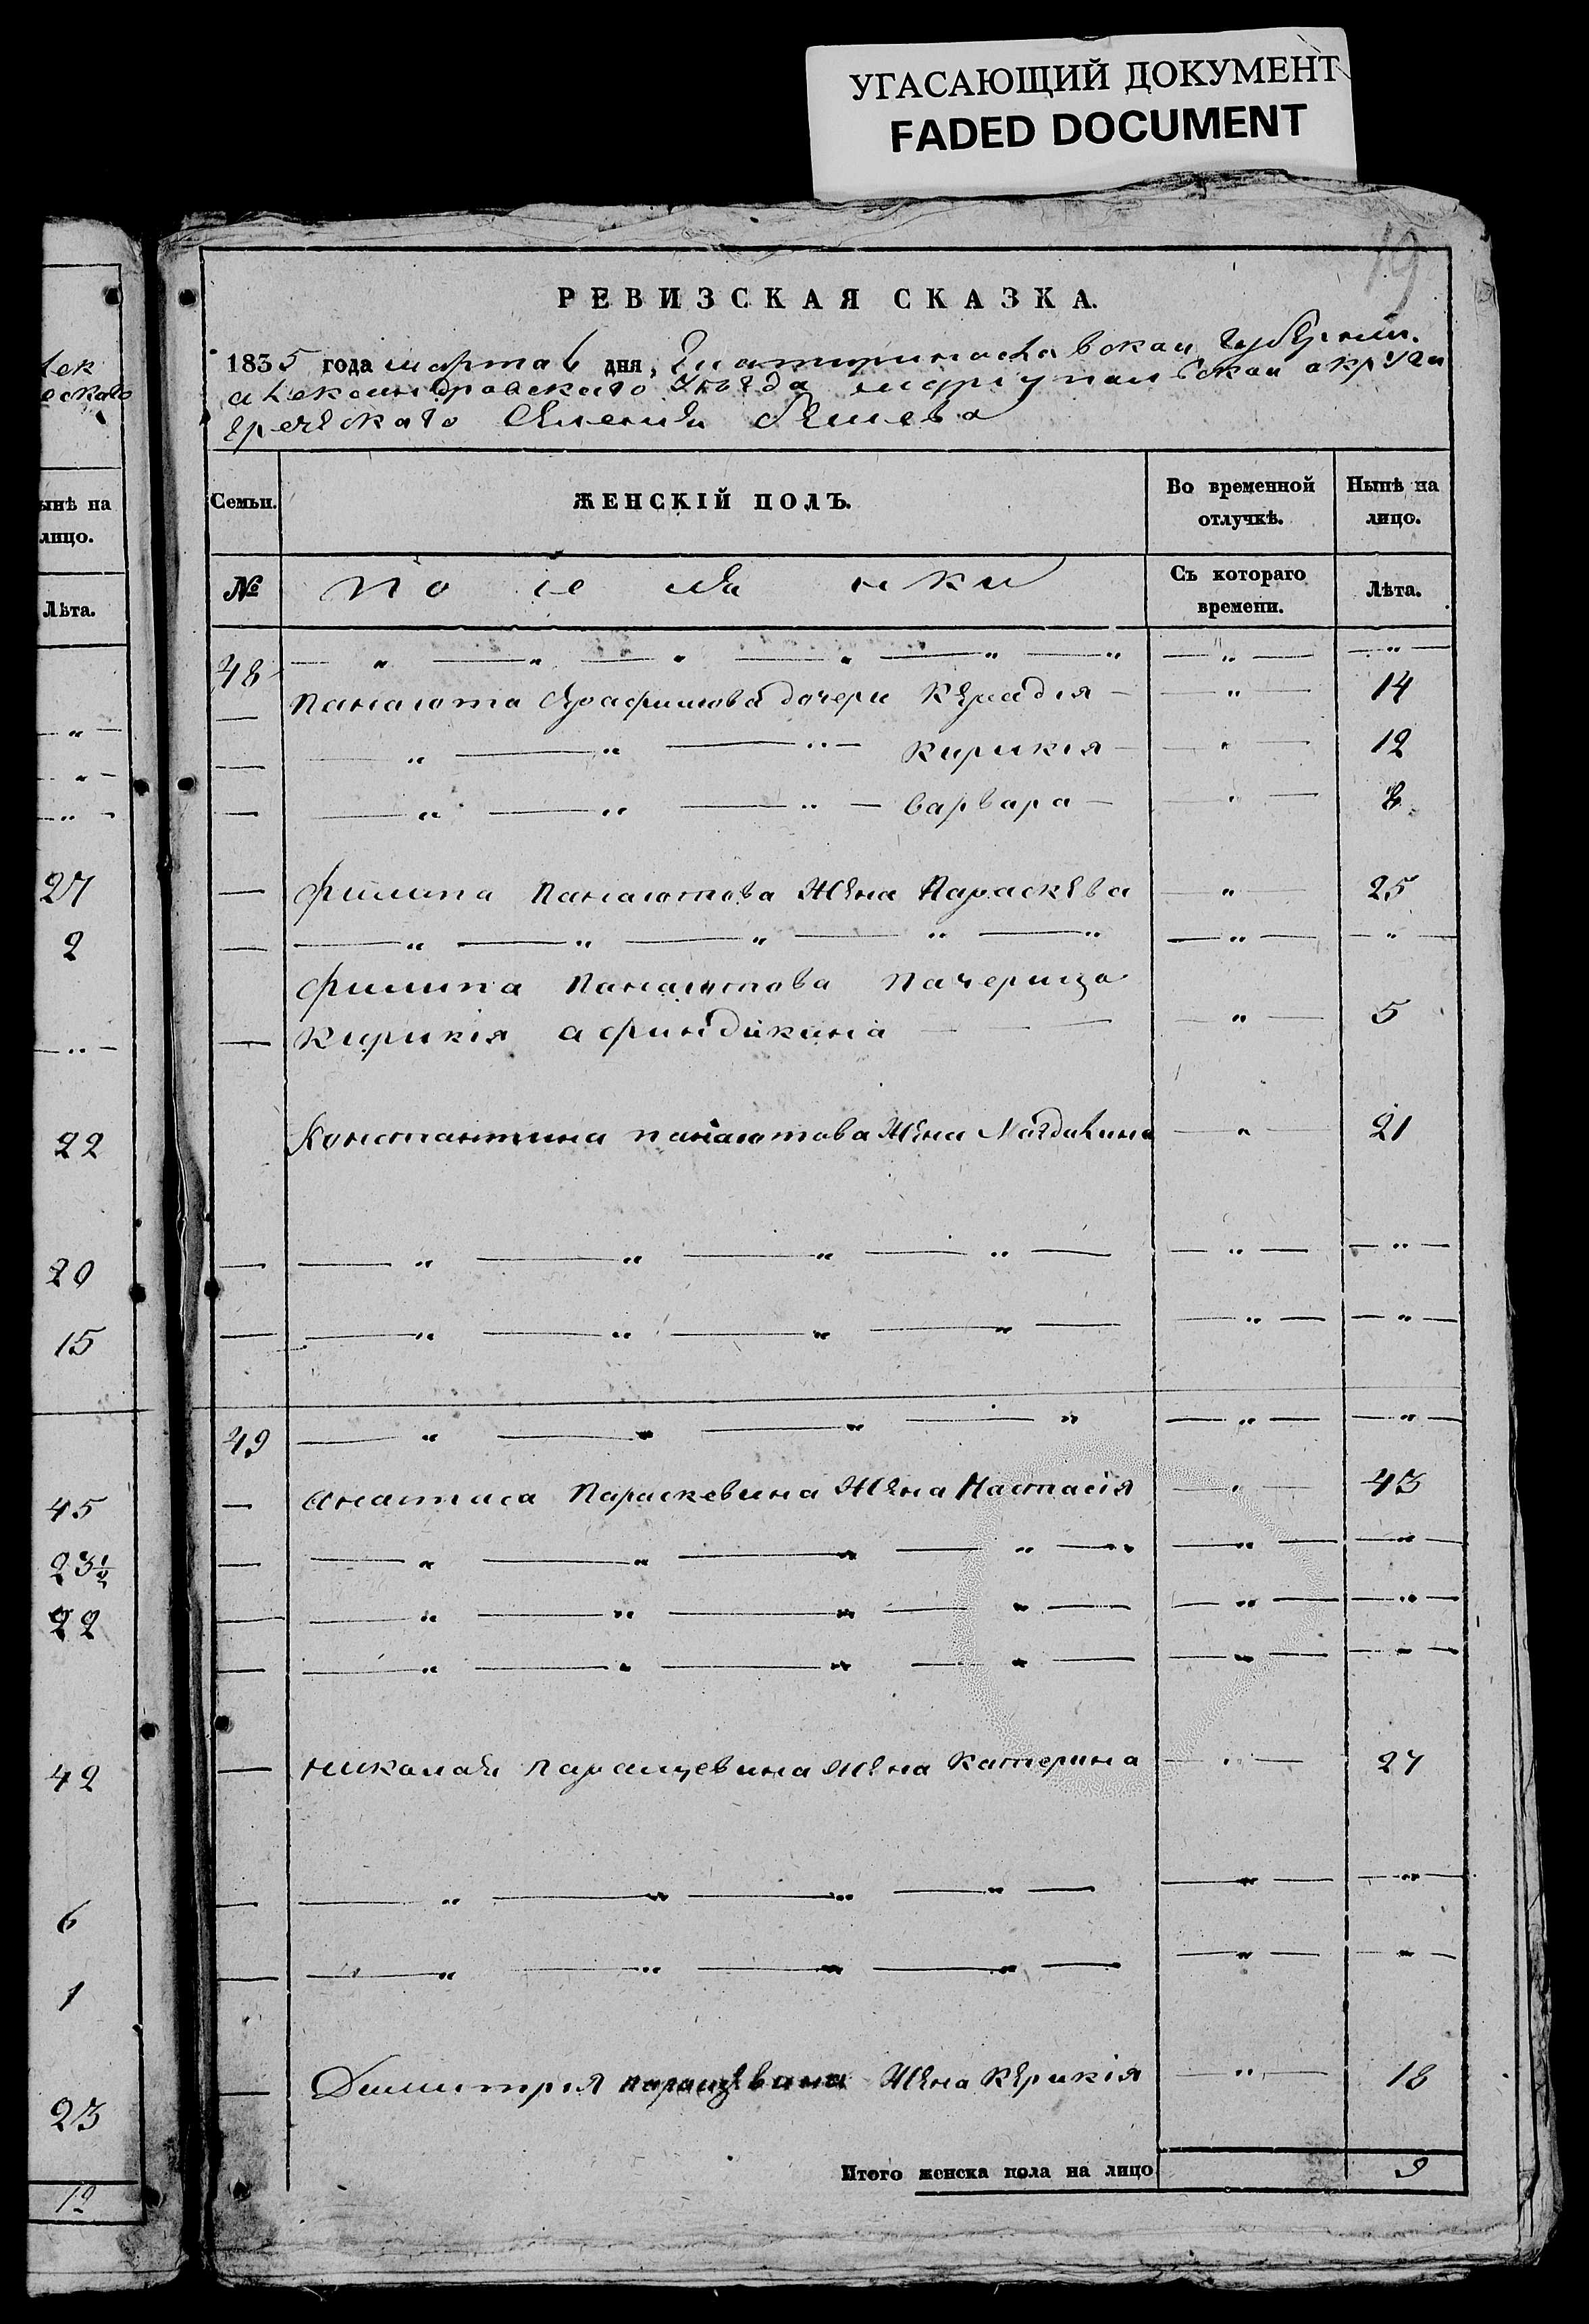 УГАСАЮЩИЙ ДОКУМЕНТ
FADED DOCUMENT
19
РЕВИЗСКАЯ СКАЗКА.
1835 года марта 6 дня, Екатеринославской Губернии.
александровскаго уезда мариупольской округи
греческаго Селения бешева
Семьи.
ЖЕНСКІЙ ПОЛЪ.
Во временной отлучкѣ.
Нынѣ на лицо.
№
поселянки
Съ котораго времени.
Лѣта.
48
Панаиота дочери 14
Кирикія 12
Варвара 8
филипа Панаиотова жена Параскева 25
филипа Панаиотова пачерица
Кирикія 5
Константина панаиотова жена 21
49
Анастаса Параскевина жена Настасія 43
николая паращевина жена Катерина 27
Димитрія паращевина жена Керикія 18
Итого женска пола на лицо 9
ынѣ на
лицо.
Лѣта.
27
2
22
20
15
45
23½
22
42
6
1
23
12